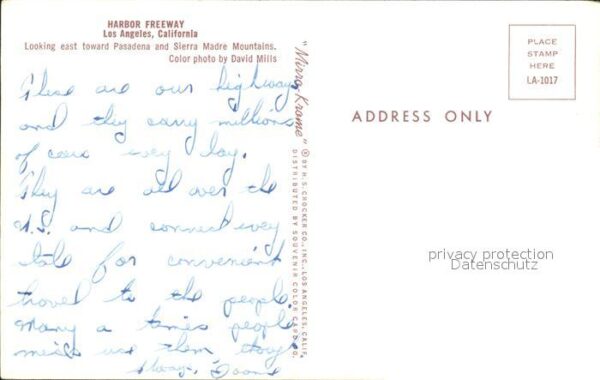 HARBOR FREEWAY
Los Angeles, California
Looking east toward Pasadena and Sierra Madre Mountains.
Color photo by David Mills
These are our highways
and they carry millions
of cars every day.
They are all over the
U.S. and connect every
state for convenient
travel to the people.
Many a times people
use them
Always,
"Mirro-Krome"
® BY H. S. CROCKER CO., INC., LOS ANGELES, CALIF.
DISTRIBUTED BY SOUVENIR COLOR CARD CO.
PLACE
STAMP
HERE
LA-1017
ADDRESS ONLY
privacy protection
Datenschutz